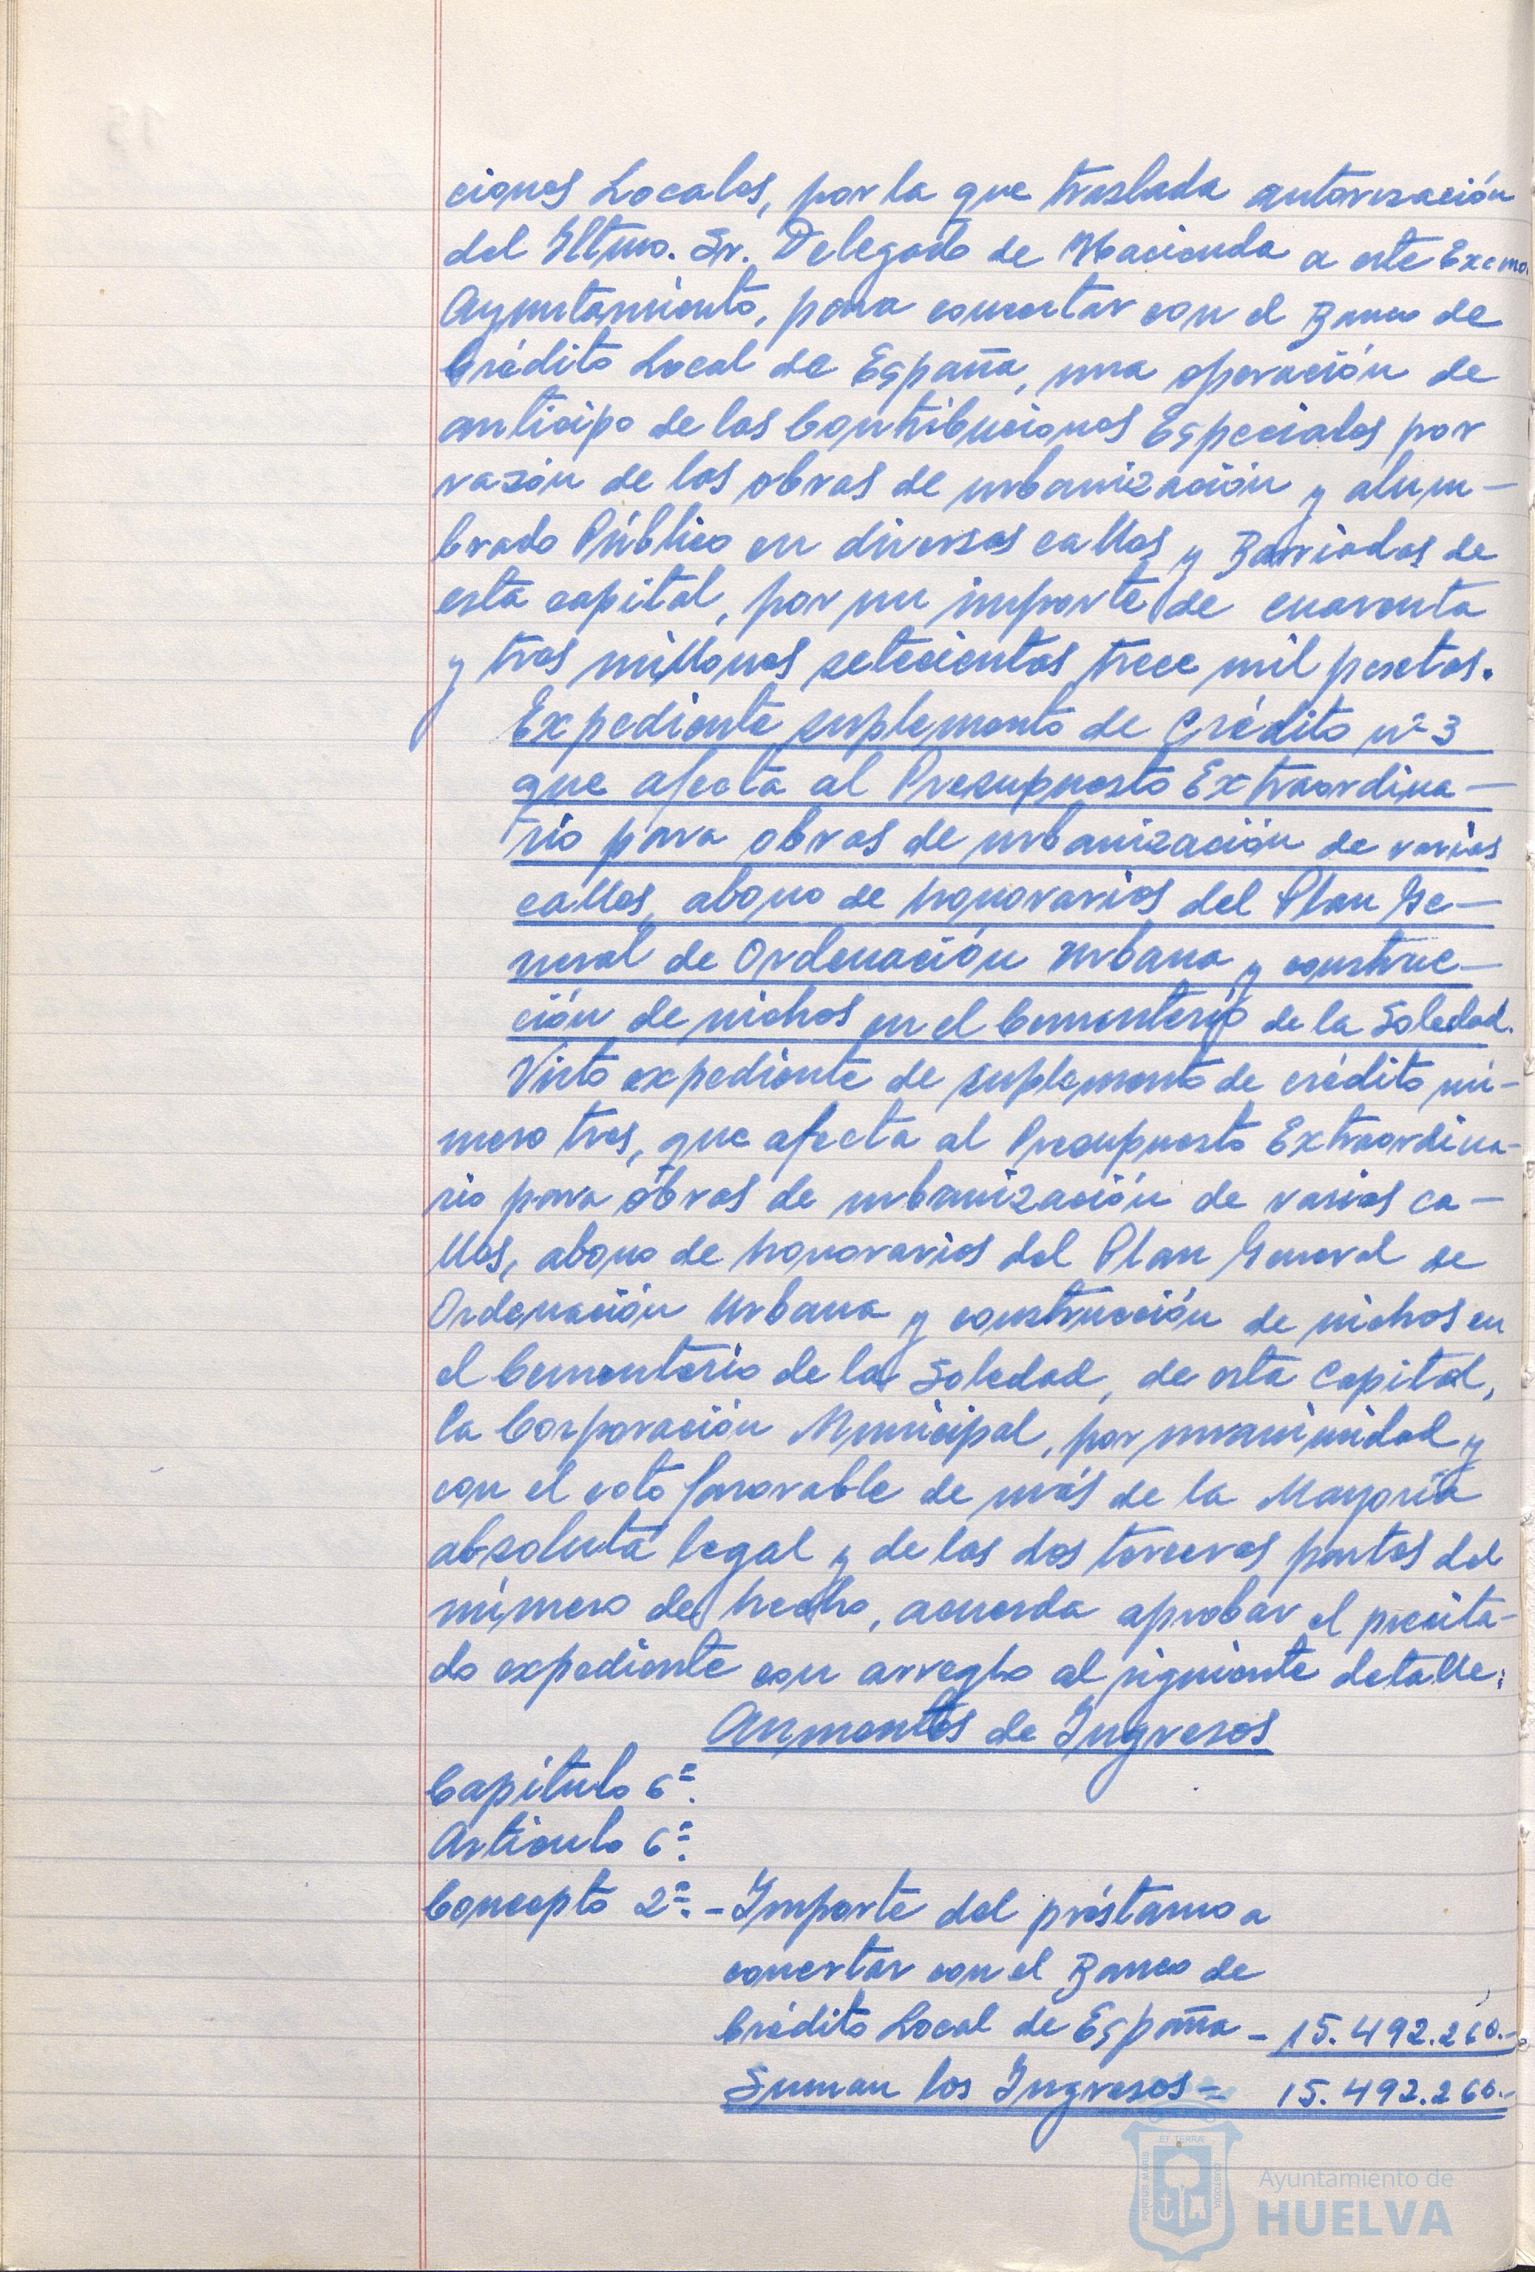 ciones Locales, por la que traslada autorización
del Iltmo. Sr. Delegado de Hacienda a este Excmo.
Ayuntamiento, para concertar con el Banco de
Crédito Local de España, una operación de
anticipo de las Contribuciones Especiales por
razón de las obras de urbanización y alum-
brado Público en diversas calles y Barriadas de
esta capital, por un importe de cuarenta
y tres millones setecientas trece mil pesetas.
Expediente suplemento de Crédito nº 3
que afecta al Presupuesto Extraordina-
rio para obras de urbanización de varias
calles, abono de honorarios del Plan Ge-
neral de Ordenación Urbana y construc-
ción de nichos en el Cementerio de la Soledad.
Visto expediente de suplemento de crédito nú-
mero tres, que afecta al Presupuesto Extraordina-
rio para obras de urbanización de varias ca-
lles, abono de honorarios del Plan General de
Ordenación Urbana y construcción de nichos en
el Cementerio de la Soledad, de esta Capital,
la Corporación Municipal, por unanimidad y
con el voto favorable de más de la Mayoría
absoluta legal y de las dos terceras partes del
número de hecho, acuerda aprobar el precita-
do expediente con arreglo al siguiente detalle:
Aumentos de Ingresos
Capítulo 6º.
Artículo 6º.
Concepto 2º.- Importe del préstamo a
concertar con el Banco de
Crédito Local de España - 15.492.260.-
Suman los Ingresos - 15.492.260.-
ET TERRÆ
PORTUS MARIS
CUSTODIA
Ayuntamiento de
HUELVA